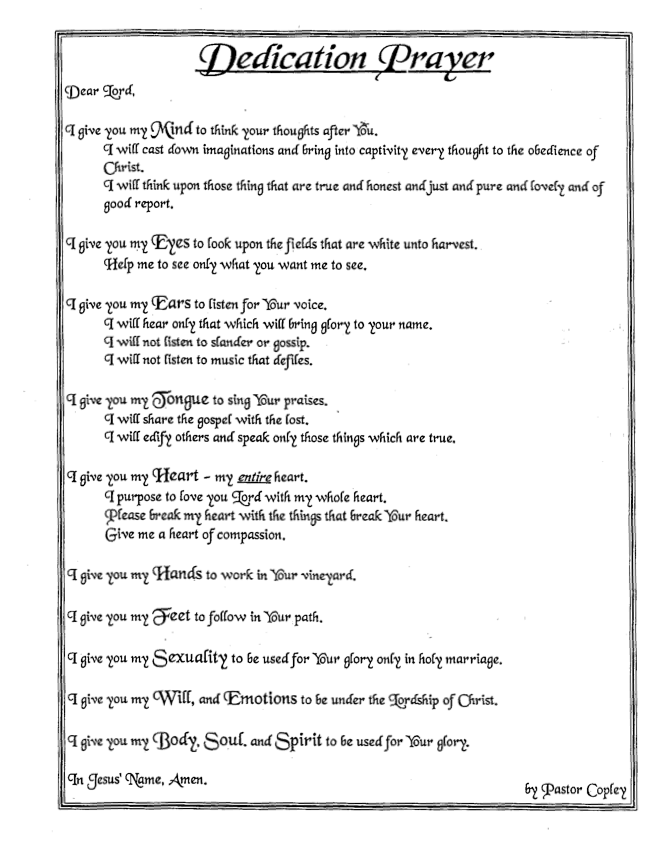 Dedication Prayer
Dear Lord,
I give you my Mind to think your thoughts after You.
I will cast down imaginations and bring into captivity every thought to the obedience of
Christ.
I will think upon those thing that are true and honest and just and pure and lovely and of
good report.
I give you my Eyes to look upon the fields that are white unto harvest.
Help me to see only what you want me to see.
I give you my Ears to listen for Your voice.
I will hear only that which will bring glory to your name.
I will not listen to slander or gossip.
I will not listen to music that defiles.
I give you my Tongue to sing Your praises.
I will share the gospel with the lost.
I will edify others and speak only those things which are true.
I give you my Heart - my entire heart.
I purpose to love you Lord with my whole heart.
Please break my heart with the things that break Your heart.
Give me a heart of compassion.
I give you my Hands to work in Your vineyard.
I give you my Feet to follow in Your path.
I give you my Sexuality to be used for Your glory only in holy marriage.
I give you my Will, and Emotions to be under the Lordship of Christ.
I give you my Body, Soul, and Spirit to be used for Your glory.
In Jesus' Name, Amen.
by Pastor Copley